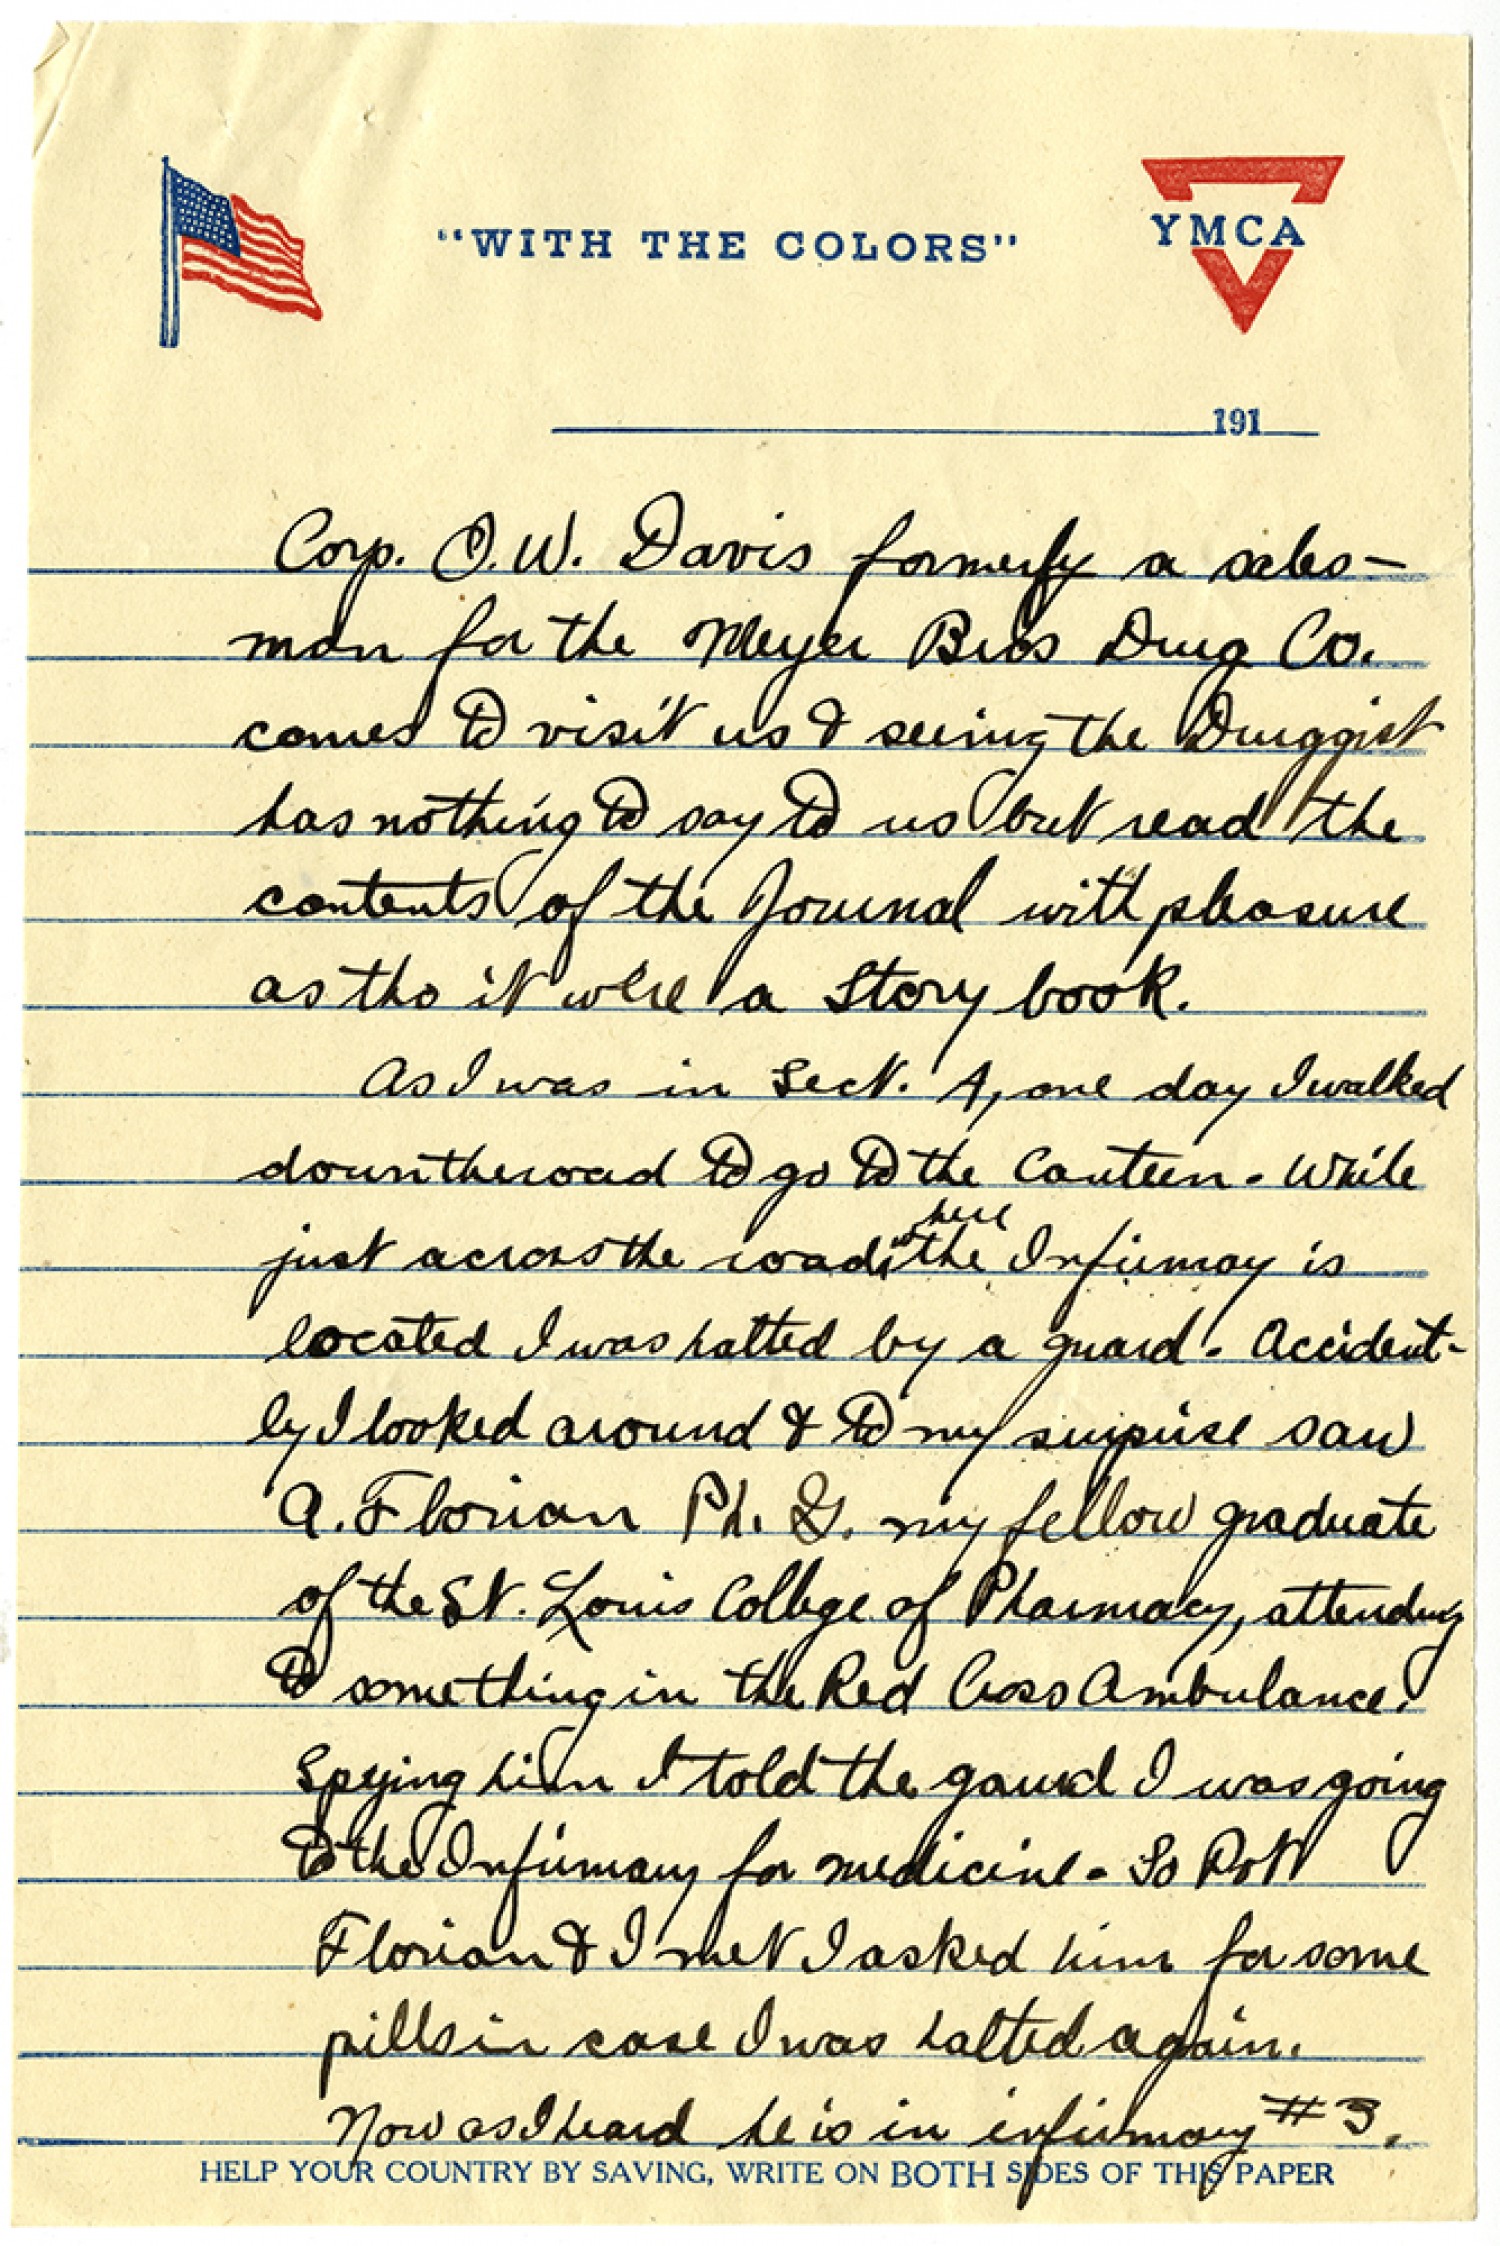 "WITH THE COLORS"
YMCA
191
Corp. O. W. Davis formerly a sales-
man for the Meyer Bros Drug Co.
comes to visit us & seeing the Druggist
has nothing to say to us but read the
contents of the Journal with pleasure
as tho it were a Story book.
As I was in Sect. A, one day I walked
down the road to go to the Canteen. While
just across the road, where the Infirmay is
located I was halted by a guard. Accident-
ly I looked around & to my surprise saw
A. Florian Ph. G. my fellow graduate
of the St. Louis College of Pharmacy, attending
to something in the Red Cross Ambulance.
Spying him I told the gaurd I was going
to the Infirmary for medicine. So Pvt
Florian & I met I asked him for some
pills in case I was halted again.
Now as I heard he is in infirmary # 3.
HELP YOUR COUNTRY BY SAVING, WRITE ON BOTH SIDES OF THIS PAPER